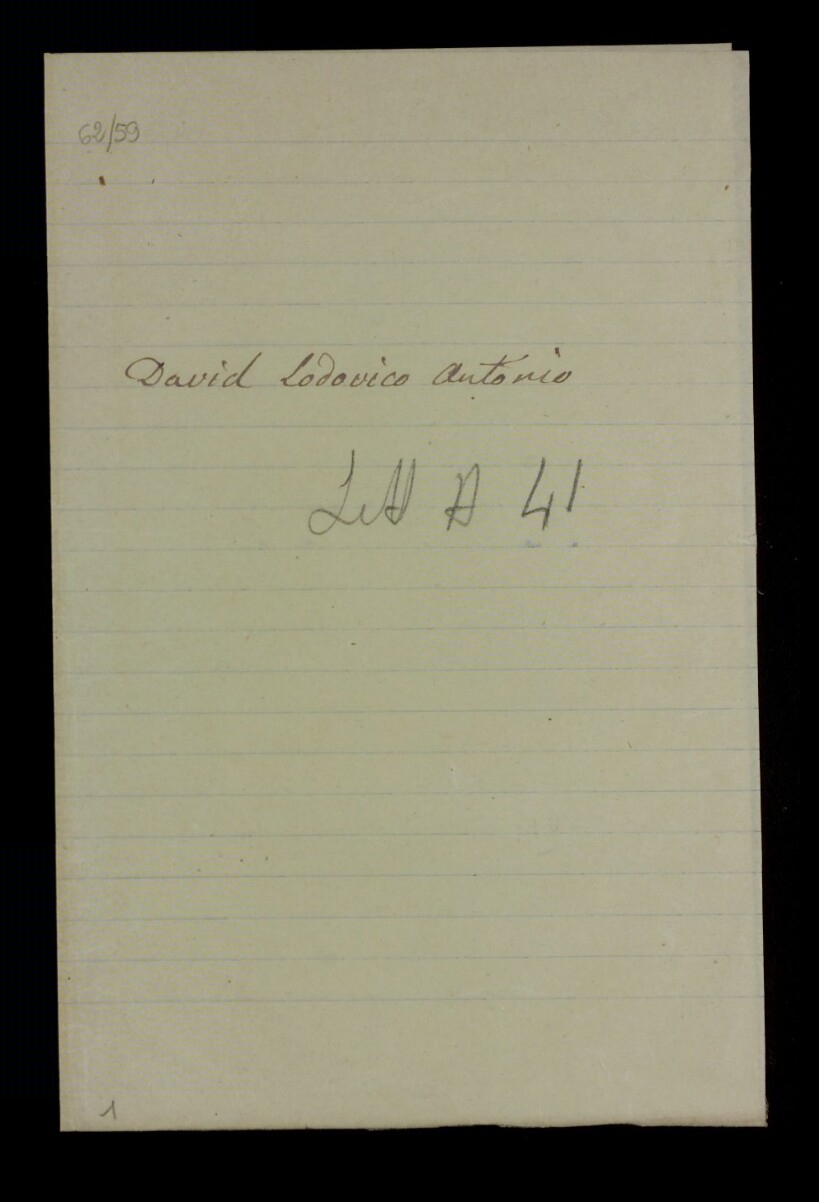 62/59
David Lodovico Antonio
Lett A 41
1